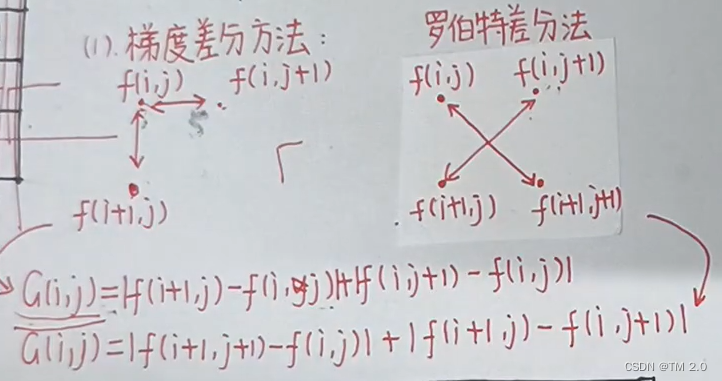 (1).梯度差分方法:
f(i,j) f(i,j+1)
f(i+1,j)
罗伯特差分法
f(i,j) f(i,j+1)
f(i+1,j) f(i+1,j+1)
G(i,j)=|f(i+1,j)-f(i,j)|+|f(i,j+1)-f(i,j)|
G(i,j)=|f(i+1,j+1)-f(i,j)|+|f(i+1,j)-f(i,j+1)|
CSDN @TM 2.0